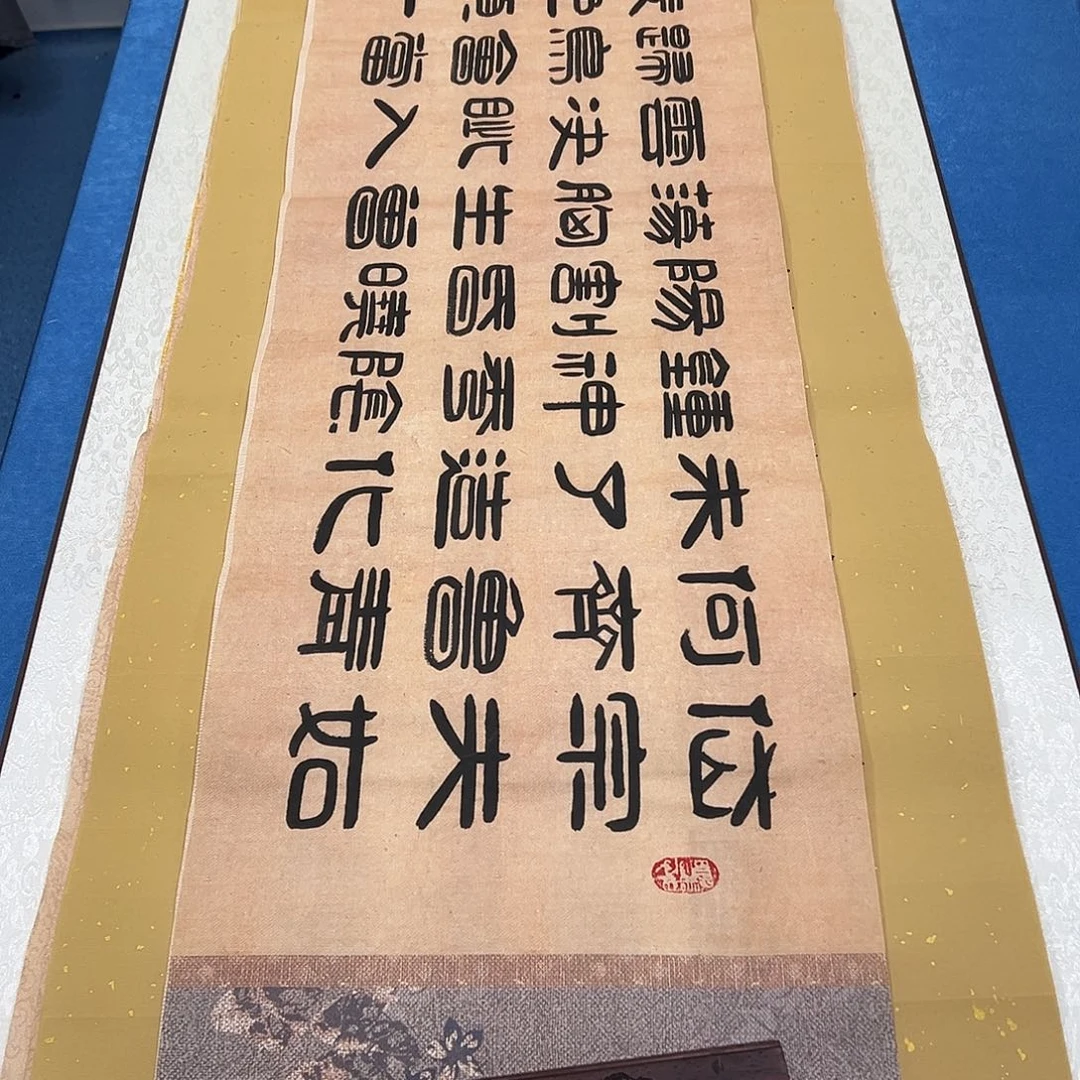 岱宗夫如
何齊魯青
未了造化
鍾神秀陰
陽割昏曉
蕩胸生曾
雲決眥入
歸鳥會當